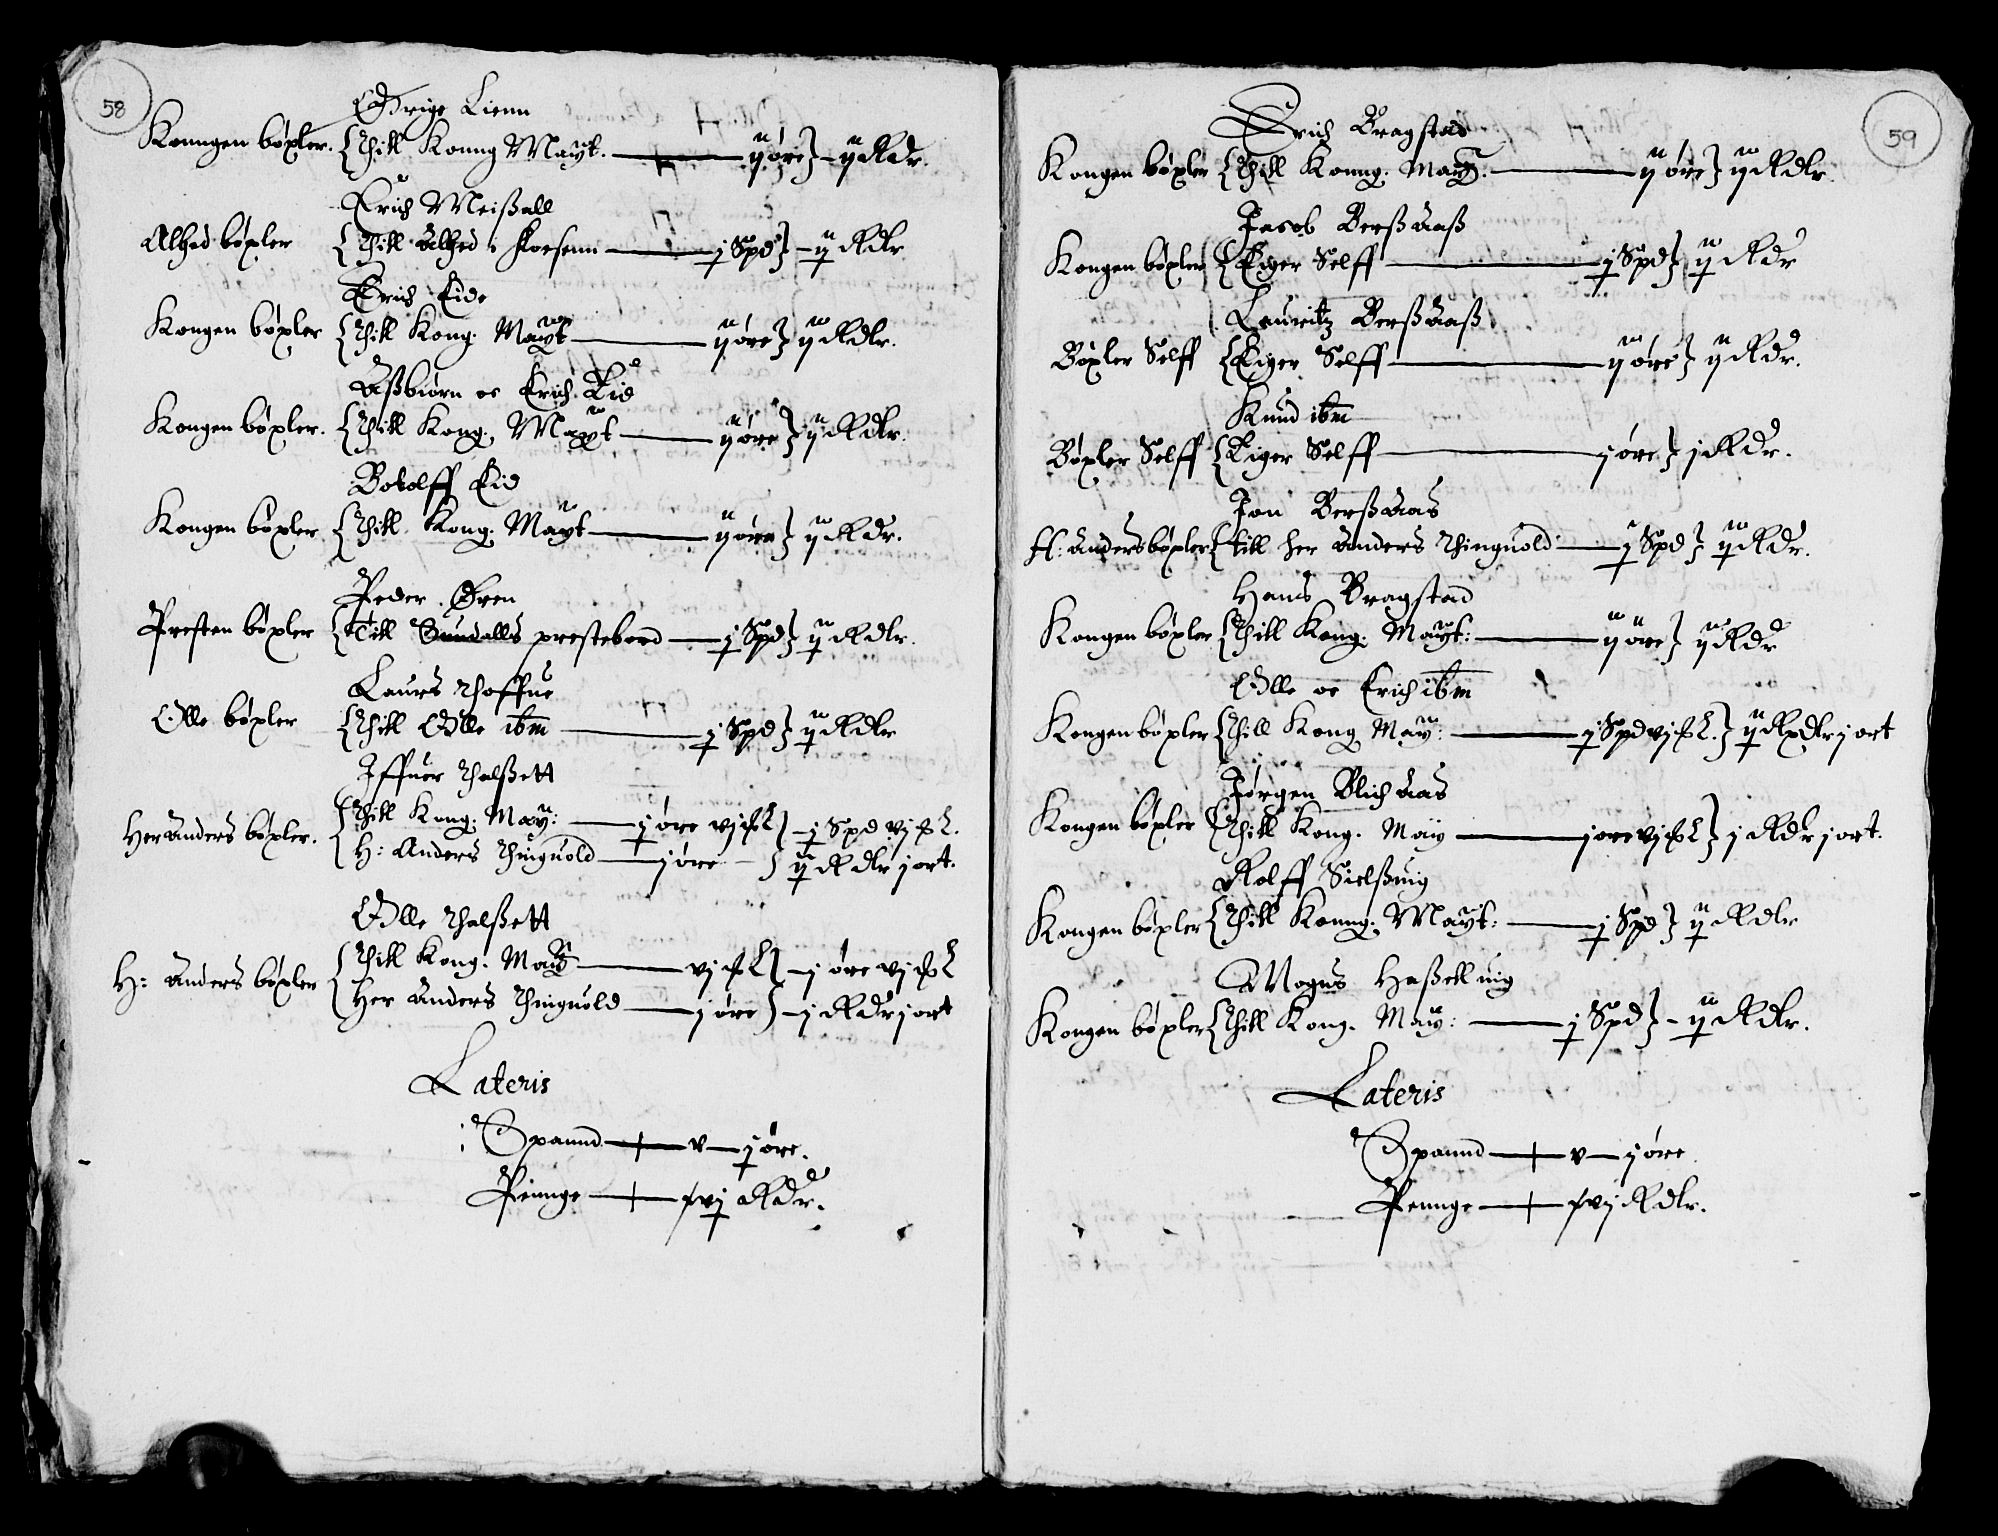 58
Ørige Lienn
Konngen bøxler. { Thill Konng Mayt. — ij øre } – ij Rdr.
Erich Meisall
Alhed bøxler { Thill Alhed i — j Spd } – ij Rdlr
Erich Eide
Kongen bøxler { Thill Kong: Mayt — ij øre } ij Rdlr.
Aßbiørn oc Erich Eid
Kongen bøxler. { Thill Kong. Mayt — ij øre } ij Rdlr.
Botolff Eid
Kongen bøxler { Thill Kong: Mayt — ij øre } ij Rdr.
Peder Øren
Presten bøxler { Till Sundalls prestebord — j Spd } ij Rdlr.
Laurs Thoffue
Olle bøxler { Thill Olle ibm — j Spd } ij Rdlr
Iffuer Thalßett
Her Anders bøxler. { Thill Kong: May: — j øre vj ₰ } – j Spd vj ₰.
{ H: Anders Thinguold — j øre – } ij Rdlr j ort.
Olle Thalßett
H: Anders bøxler { Thill Kong. May — vj ₰ } – j øre vj ₰
{ Her Anders Thinguold — j øre } – j Rdr j ort
Lateris
Spannd — v — j øre.
Pennge — xvj Rdr.
59
Erich Bragstad
Kongen bøxler { Thill Konng: Mayt. — ij øre } ij Rdlr.
Jacob Berßaaß
Kongen bøxler { Eiger Selff — j Spd } ij Rdr
Lauritz Berßaaß
Bøxler Selff { Eiger Selff — ij øre } ij Rdr.
Knud ibm
Bøxler Selff { Eiger Selff — j øre } j Rdr.
Jon Berßaas
H: Anders bøxler { till her Anders Thinguold — j Spd } ij Rdr.
Hans Bragstad
Kongen bøxler { Thill Kong. Mayt: — ij øre } ij Rdr
Olle oc Erich ibm
Kongen bøxler { Thill Kong May: — j Spd vj ₰. } ij Rxdlr j ort
Jørgen Blichaas
Kongen bøxler { Thill Kong. May — j øre vj ₰ } j Rdlr j ort.
Rolff Sielßuig
Kongen bøxler { Thill Konng: Mayt: — j Spd } ij Rdlr
Mogns Haßelluig
Kongen bøxler { Thill Kong. May: — j Spd } – ij Rdlr.
Lateris
Spannd — v — j øre
Pennge — xvj Rdlr.